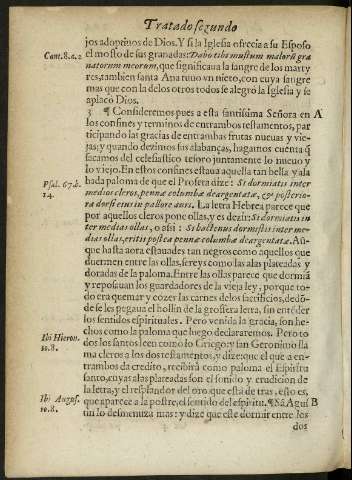 Tratado segundo
jos adoptiuos de Dios. Y si la Iglesia ofrecia a su Esposo
Cant. 8. a. 2
el mosto de sus granadas: Dabo tibi mustum malorũ gra
natorum meorum, que significaua la sangre de los marty
res, tambien santa Ana tuuo vn nieto, con cuya sangre
mas que con la de los otros todos se alegrò la Iglesia y se
aplacò Dios.
3 ¶ Consideremos pues a esta santissima Señora en A
los confines y terminos de entrambos testamentos, par
ticipando las gracias de entrambas frutas nueuas y vie-
jas; y quando dezimos sus alabanças, hagamos cuenta q̃
sacamos del celestiastico tesoro juntamente lo nueuo y
lo viejo. En estos confines estaua aquella tan bella y ala
Psal. 67. b.
14.
bada paloma de que el Profeta dize: Si dormiatis inter
medios cleros, pennæ columbæ deargentatæ, & posterio-
ra dorsi eius in pallore auri. La letra Hebrea parece que
por aquellos cleros pone ollas, y es dezir: Si dormiatis in
ter medias ollas, o assi: Si balbenus dormistis inter me-
dias ollas, eritis postea pennæ columbæ deargentatæ. Aũ-
que hasta aora estauades tan negros como aquellos que
duermen entre las ollas, sereys como las alas plateadas y
doradas de la paloma. Entre las ollas parece que dormiã
y reposauan los guardadores de la vieja ley, porque to-
do era quemar y cozer las carnes de los sacrificios, dedõ-
de se les pegaua el hollin de la grossera letra, sin enteder
los sentidos espirituales. Pero venida la gracia, son he-
chos como la paloma que luego declararemos. Pero to
Ibi Hieron.
to. 8.
dos los santos leen como lo Griego; y san Geronimo lla
ma cleros a los dos testamentos, y dize: que el que a en-
trambos da credito, recibirà como paloma el Espiritu
santo, cuyas alas plateadas son el sonido y erudicion de
la letra, y el resplandor del oro que està detras, esto es,
Ibi Augus.
to. 8.
que aparece a la postre, el sentido del espiritu. ¶ Sã Agus B
tin lo desmenuza mas: y dize que este dormir entre los
dos